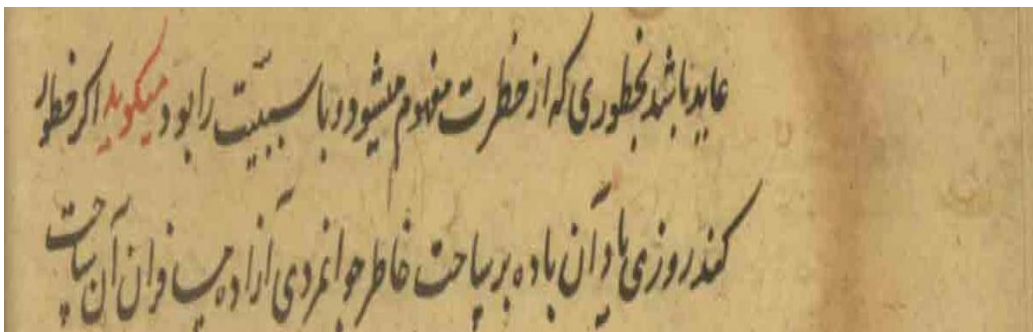 عاید باشد بخطوری که از خطرت مفهوم میشود و با سببیّت را بود میکوید اکر خطور
کند روزی یاد آن باده بر ساحت خاطر جوانمردی آزاده مسافران آن ساحت